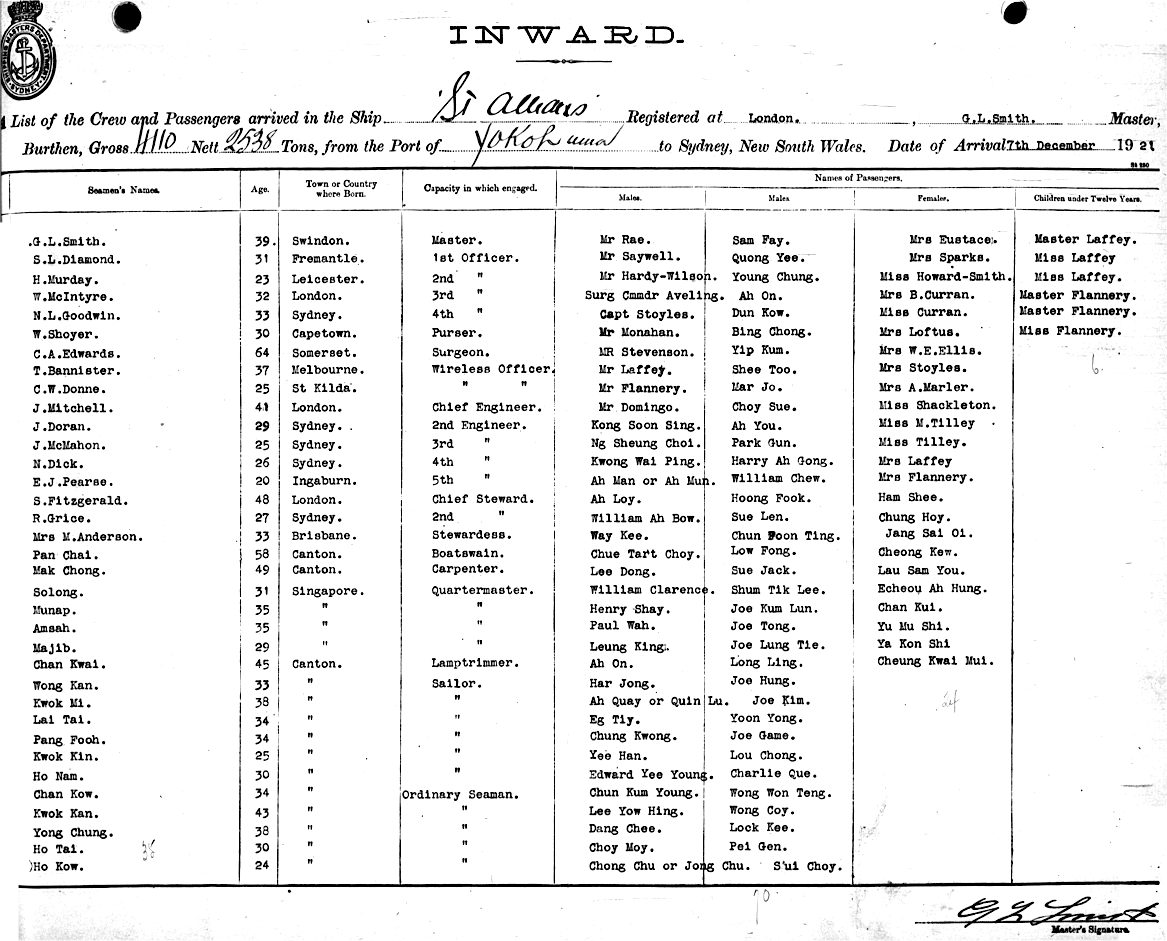 SHIPPING MASTERS DEPARTMENT SYDNEY
INWARD.
List of the Crew and Passengers arrived in the Ship St Albans Registered at London. , G.L.Smith. Master,
Burthen, Gross 4110 Nett 2538 Tons, from the Port of Yokohama to Sydney, New South Wales. Date of Arrival 7th December 1921
Seamen's Names. Age. Town or Country where Born. Capacity in which engaged. Names of Passengers.
Males. Males Females. Children under Twelve Years.
G.L.Smith. 39. Swindon. Master. Mr Rae. Sam Fay. Mrs Eustace. Master Laffey.
S.L.Diamond. 31 Fremantle. 1st Officer. Mr Saywell. Quong Yee. Mrs Sparks. Miss Laffey
H.Murday. 23 Leicester. 2nd " Mr Hardy-Wilson. Young Chung. Miss Howard-Smith. Miss Laffey.
W.McIntyre. 32 London. 3rd " Surg Cmmdr Aveling. Ah On. Mrs B.Curran. Master Flannery.
N.L.Goodwin. 33 Sydney. 4th " Capt Stoyles. Dun Kow. Miss Curran. Master Flannery.
W.Shoyer. 30 Capetown. Purser. Mr Monahan. Bing Chong. Mrs Loftus. Miss Flannery.
C.A.Edwards. 64 Somerset. Surgeon. MR Stevenson. Yip Kum. Mrs W.E.Ellis.
T.Bannister. 37 Melbourne. Wireless Officer. Mr Laffey. Shee Too. Mrs Stoyles. 6
C.W.Donne. 25 St Kilda. " " Mr Flannery. Mar Jo. Mrs A.Marler.
J.Mitchell. 41 London. Chief Engineer. Mr Domingo. Choy Sue. Miss Shackleton.
J.Doran. 29 Sydney. 2nd Engineer. Kong Soon Sing. Ah You. Miss M.Tilley
J.McMahon. 25 Sydney. 3rd " Ng Sheung Choi. Park Gun. Miss Tilley.
N.Dick. 26 Sydney. 4th " Kwong Wai Ping. Harry Ah Gong. Mrs Laffey
E.J.Pearse. 20 Ingaburn. 5th " Ah Man or Ah Mun. William Chew. Mrs Flannery.
S.Fitzgerald. 48 London. Chief Steward. Ah Loy. Hoong Fook. Ham Shee.
R.Grice. 27 Sydney. 2nd " William Ah Bow. Sue Len. Chung Hoy.
Mrs M.Anderson. 33 Brisbane. Stewardess. Way Kee. Chun Foon Ting. Jang Sai Oi.
Pan Chai. 58 Canton. Boatswain. Chue Tart Choy. Low Fong. Cheong Kew.
Mak Chong. 49 Canton. Carpenter. Lee Dong. Sue Jack. Lau Sam You.
Solong. 31 Singapore. Quartermaster. William Clarence. Shum Tik Lee. Echeou Ah Hung.
Munap. 35 " " Henry Shay. Joe Kum Lun. Chan Kui.
Amsah. 35 " " Paul Wah. Joe Tong. Yu Mu Shi.
Majib. 29 " " Leung King. Joe Lung Tie. Ya Kon Shi
Chan Kwai. 45 Canton. Lamptrimmer. Ah On. Long Ling. Cheung Kwai Mui.
Wong Kan. 33 " Sailor. Har Jong. Joe Hung.
Kwok Mi. 38 " " Ah Quay or Quin Lu. Joe Kim. 24
Lai Tai. 34 " " Eg Tiy. Yoon Yong.
Pang Fooh. 34 " " Chung Kwong. Joe Game.
Kwok Kin. 25 " " Yee Han. Lou Chong.
Ho Nam. 30 " " Edward Yee Young. Charlie Que.
Chan Kow. 34 " Ordinary Seaman. Chun Kum Young. Wong Won Teng.
Kwok Kan. 43 " " Lee Yow Hing. Wong Coy.
Yong Chung. 38 " " Dang Chee. Lock Kee.
Ho Tai. 38 30 " " Choy Moy. Pei Gen.
Ho Kow. 24 " " Chong Chu or Jong Chu. Sui Choy.
70
G L Smith
Master's Signature.